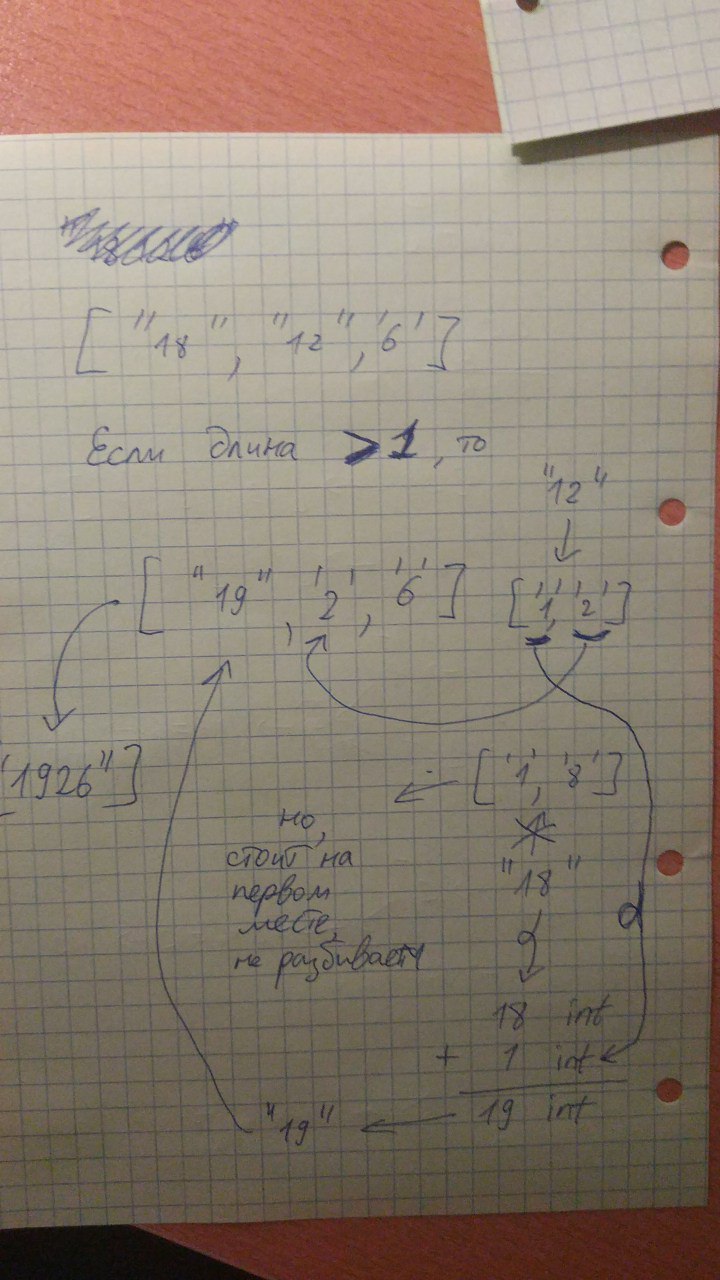 ["18", "12", '6']
Если длина >1, то
"12"
["19", '2', '6']
['1', '2']
["1926"]
['1', '8']
но,
стоит на
первом
месте,
не разбивается
"18"
18 int
+ 1 int
19 int
"19"